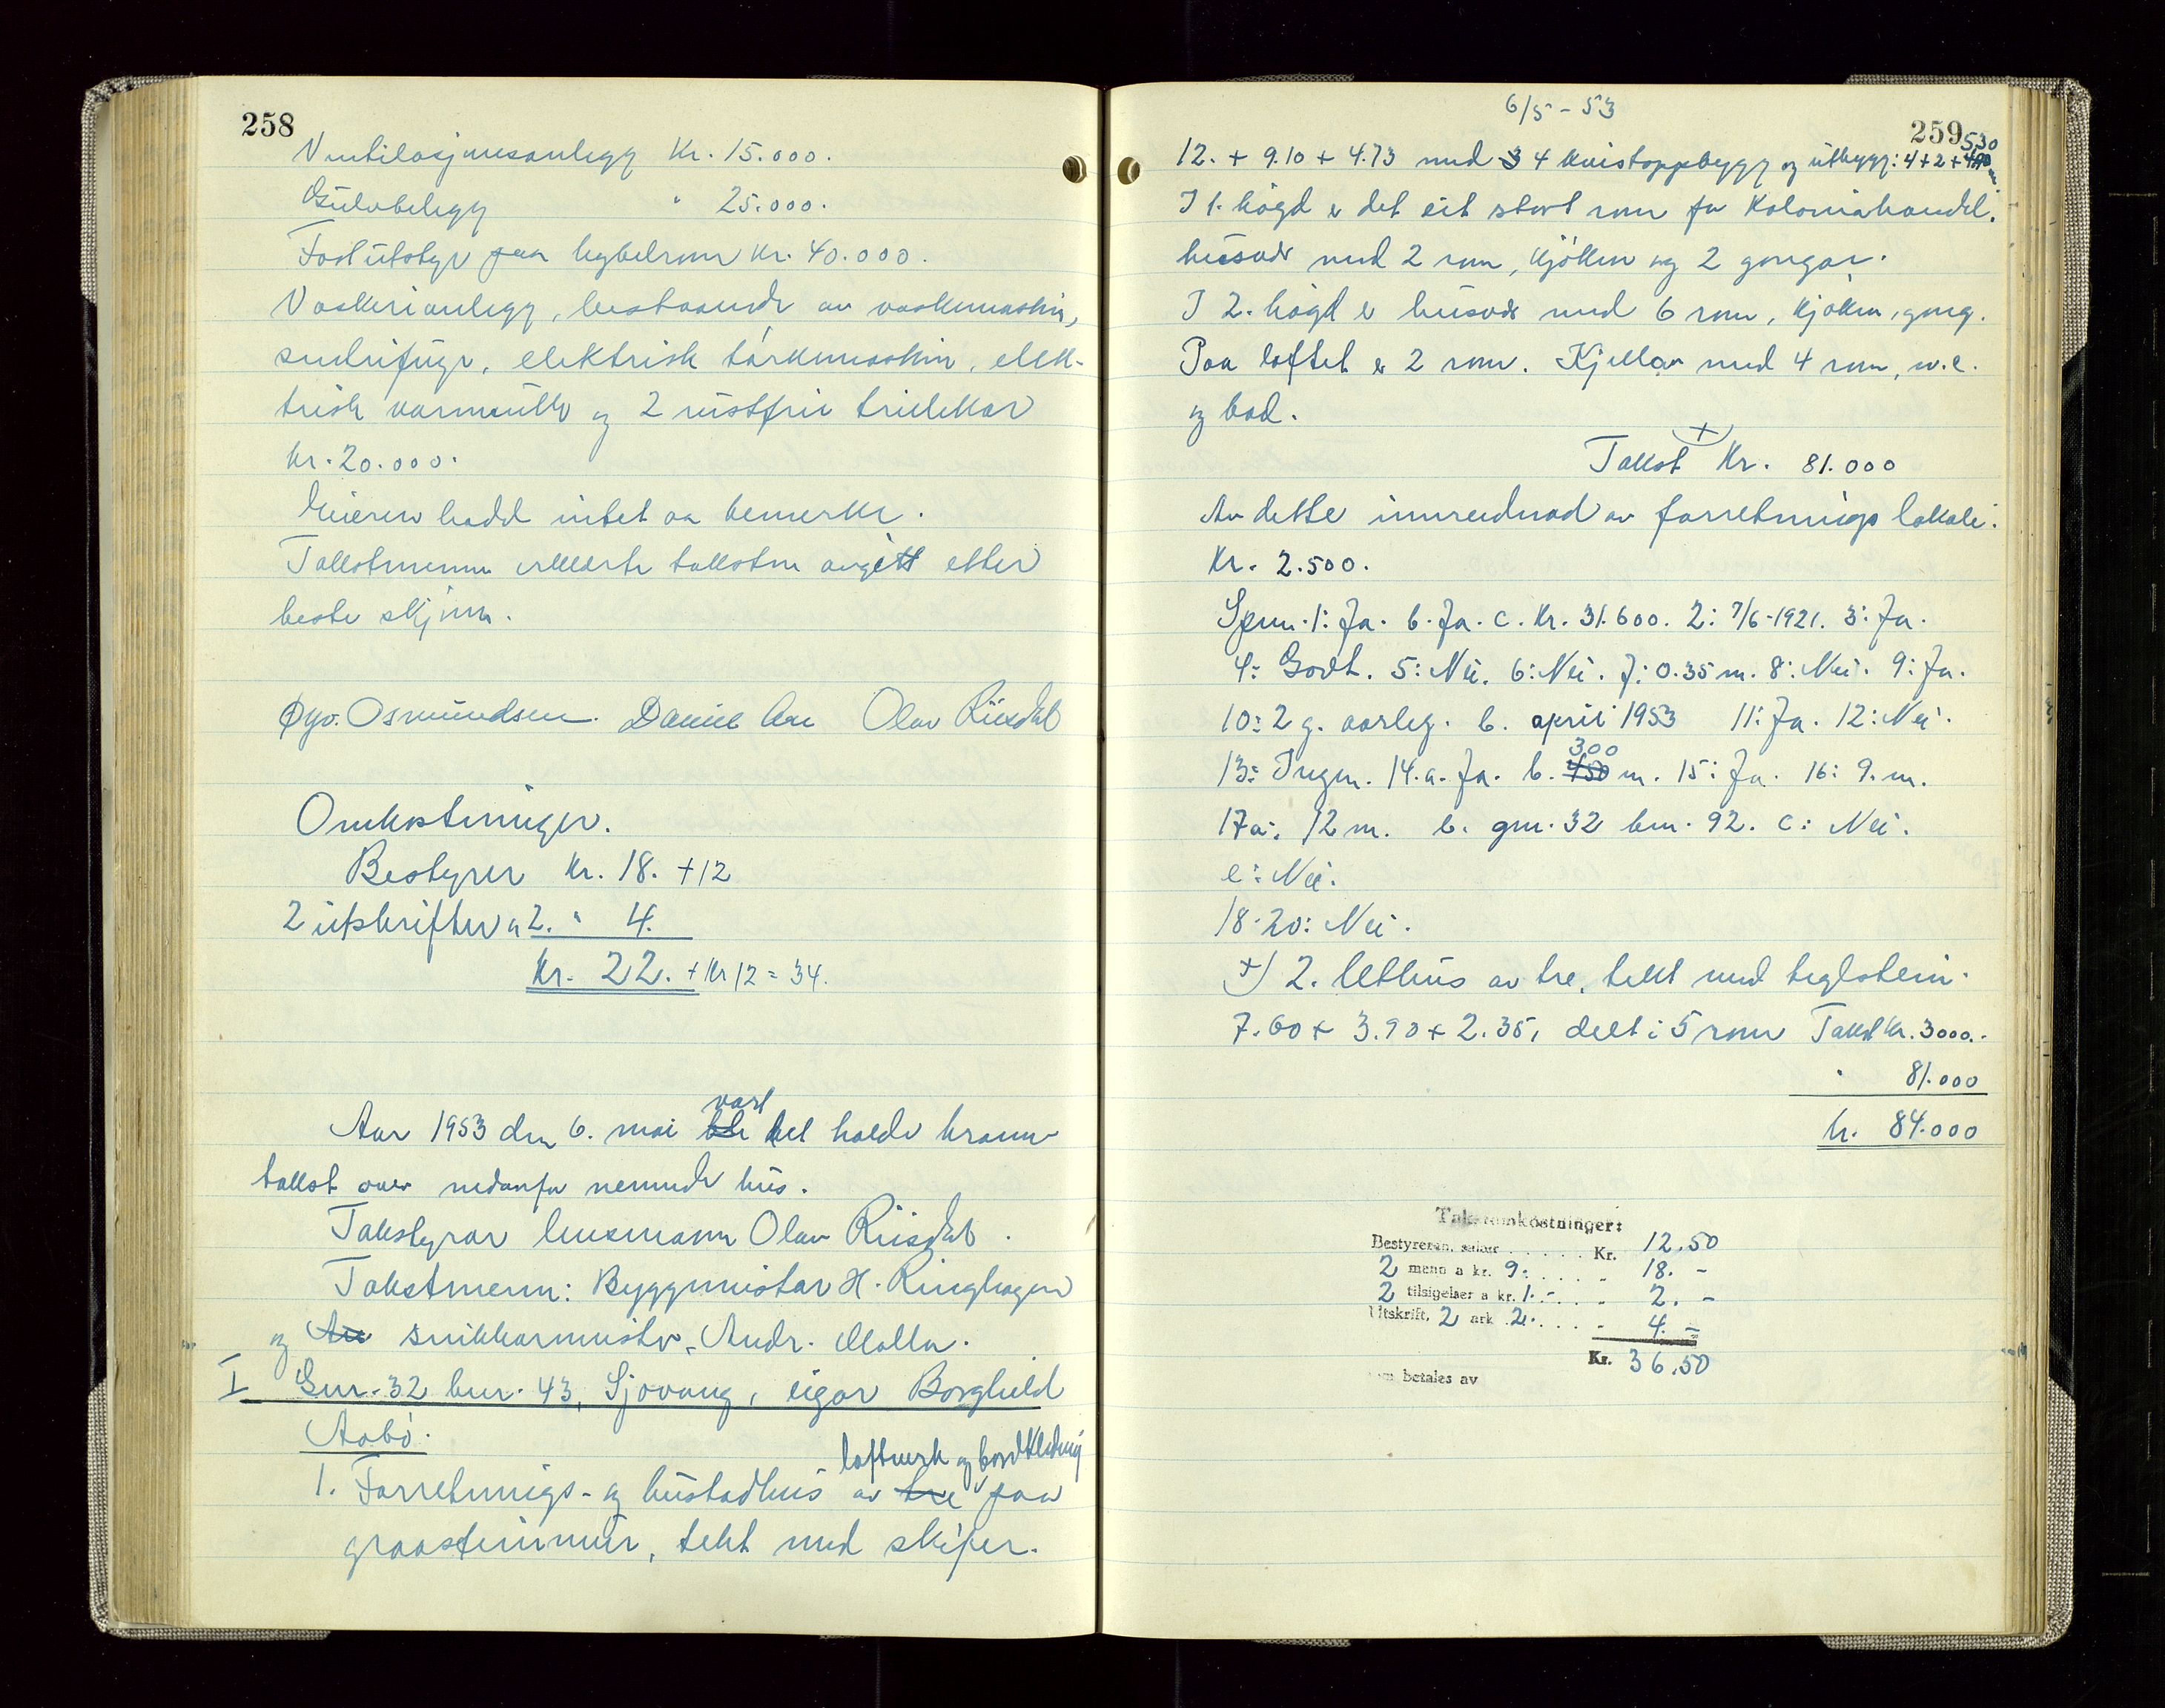 258
Ventilasjonsanlegg Kr. 15.000.
Gulvbelegg " 25.000.
Fast utstyr paa hybelrom Kr. 40.000.
Vaskerianlegg, bestaaende av vaskemaskin,
sentrifuge, elektrisk törkemaskin, elek-
trisk varmrull og 2 rustfrie trillekar
Kr. 20.000.
Eieren hadde intet aa bemerke.
Takstmennene erklærte taksten avgitt etter
beste skjönn.
Osmundsen. Daniel Aae Olav Riisdal
Omkostninger.
Bestyrer Kr. 18. +12
2 utskrifter a 2. " 4.
Kr. 22. + Kr 12 = 34.
vart
Aar 1953 den 6. mai ble det halde brann-
takst over nedanfor nemnde hus.
Takstyrar lensmann Olav Riisdal.
Takstmenn: Byggmeistar H. Ringhagen
og snikkarmeister Andr. Molla.
I Gnr. 32 bnr. 43, Sjovang, eigar Borghild
Aabö.
laftverk og bordkledning
1. Forretnings- og bustadhus av tre paa
graasteinmur, tekt med skifer.
6/5 - 53
259
530
12. + 9.10 + 4.73 med 3 4 kvistoppbygg og utbygg: 4+2+
I 1. högd er det eit stort rom for Kolonialhandel.
husvære med 2 rom, kjökken og 2 gongar.
I 2. högd er husvære med 6 rom, kjöken, gong.
Paa loftet er 2 rom. Kjellar med 4 rom, w.c.
og bad.
+)
Takst Kr. 81.000
Av dette innreidnad av forretnings lokale:
Kr. 2.500.
Spm. 1: Ja. b. Ja. c. Kr. 31.600. 2: 7/6-1921. 3: Ja.
4: Godt. 5: Nei. 6: Nei. 7: 0.35 m. 8: Nei. 9: Ja.
10: 2 g. aarleg. b. april 1953 11: Ja. 12: Nei.
300
13: Ingen. 14.a. Ja. b. 450 m. 15: Ja. 16: 9. m.
17a: 12 m. b. gnr. 32 bnr. 92. c: Nei.
e: Nei.
18-20: Nei.
+) 2. Uthus av tre, tekt med teglstein.
7.60 + 3.90 + 2.35, delt i 5 rom Takst Kr. 3000.-
" 81.000
kr. 84.000
Takstomkostninger:
Bestyreren, salær . . . . . Kr. 12.50
2 menn a kr. 9.- . . . . " 18. -
2 tilsigelser a kr. 1.- . . . " 2. -
Utskrift, 2 ark 2.- . . . . " 4. -
Kr. 36.50
som betales av